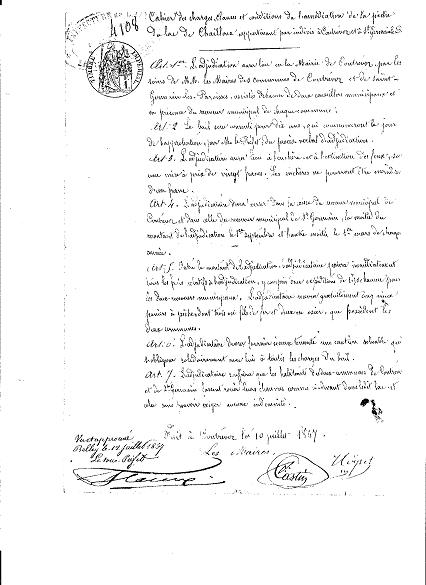 4108
TIMBRE
Cahier des charges, clauses et conditions de l'amodiation de la pêche
du lac de Chaillou appartenant par indivis à Contrevoz et à St Germain
Art. 1er. L'adjudication aura lieu en la Mairie de Contrevoz, par les
soins de M.M. les Maires des communes de Contrevoz et de Saint-
Germain-les-Paroisses, assistés de chacun de deux conseillers municipaux et
en présence du receveur municipal de chaque commune.
Art. 2. Le bail sera consenti pour dix ans, qui commenceront le jour
de l'approbation, par Mr le Préfet du procès verbal d'adjudication.
Art. 3. L'adjudication aura lieu à l'enchère et à l'extinction des feux, sur
une mise à prix de vingt francs. Les enchères ne pourront être moindres
d'un franc.
Art. 4. L'adjudicataire devra verser dans la caisse du receveur municipal de
Contrevoz et dans celle du receveur municipal de St Germain, la moitié du
montant de l'adjudication le 1er septembre et l'autre moitié le 1er mars de chaque
année.
Art. 5. Outre le montant de l'adjudication, l'adjudicataire payera
tous les frais relatifs à l'adjudication, y compris une expédition de l'acte pour
les deux receveurs municipaux. L'adjudicataire
les
deux communes.
Art. 6. L'adjudicataire devra fournir séance tenante une caution solvable qui
s'obligera solidairement avec lui à toutes les charges du bail.
Art. 7. L'adjudicataire souffrira que les habitants des deux communes de Contrevoz
et de St Germain fassent rouir leurs chanvres comme ci-devant dans ledit lac et
cela sans pouvoir exiger aucune indemnité.
Fait à Contrevoz le 10 juillet 1847.
Les Maires.
Vu et approuvé
Belley le 12 juillet 1847
Le sous-Préfet
Castin